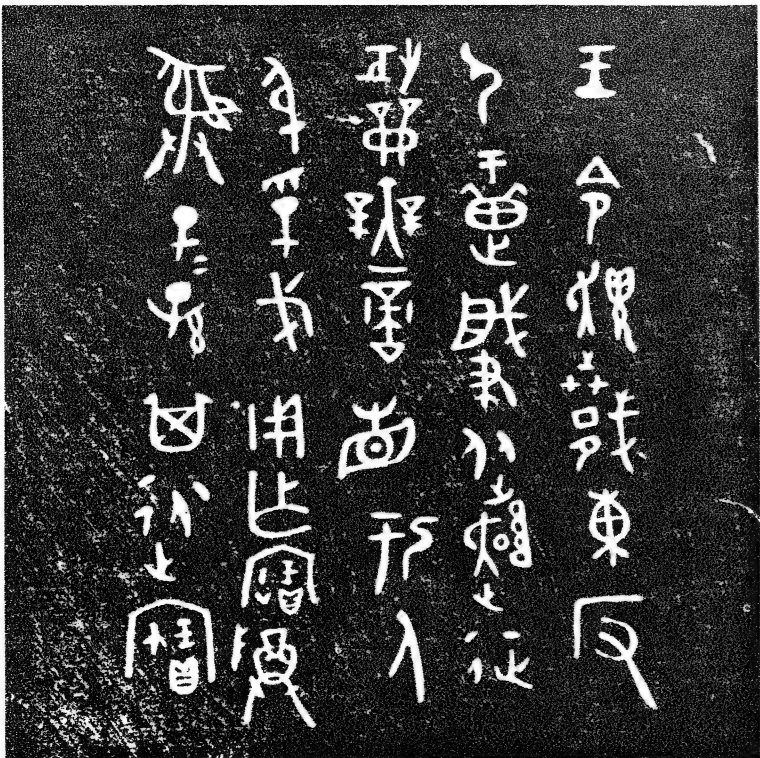 王令趞戡東反
夷疐肇從趞征
攻龠無啻省于人
身孚戈用乍寶尊
彝子=孫其永寶